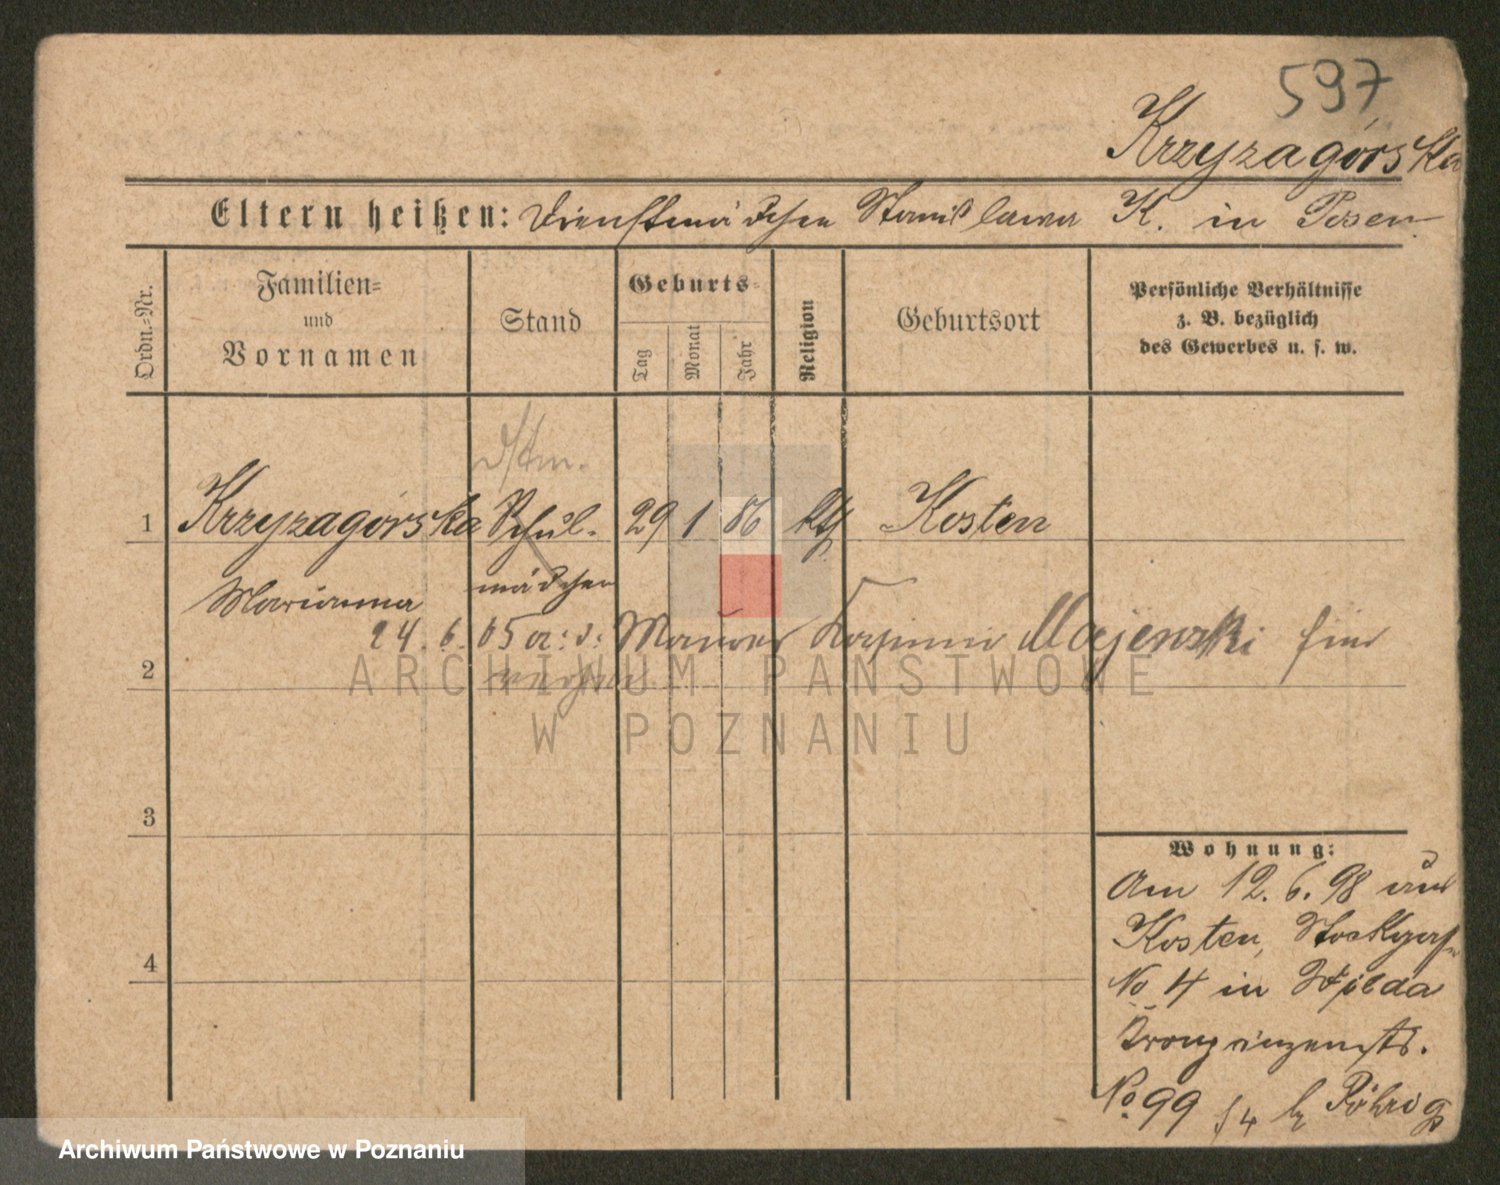 597
Krzyzagórska
Eltern heißen: Dienstmädchen Stanislawa K. in Posen
Ordn.-Nr.
Familien-
und
Vornamen
Stand
Geburts-
Tag
Monat
Jahr
Religion
Geburtsort
Persönliche Verhältnisse
z. B. bezüglich
des Gewerbes u. s. w.
Dstm.
1 Krzyzagórska Schul- 29 1 86 kth Kosten
Marianna mädchen
24. 6. 05 a. d. Maurer Kasimir Majewski hier
2
ARCHIWUM PAŃSTWOWE
W POZNANIU
3
4
Wohnung:
Am 12. 6. 98 aus
Kosten,
No 4 in Wilda
Kronprinzenstr.
No. 99 b/
Archiwum Państwowe w Poznaniu